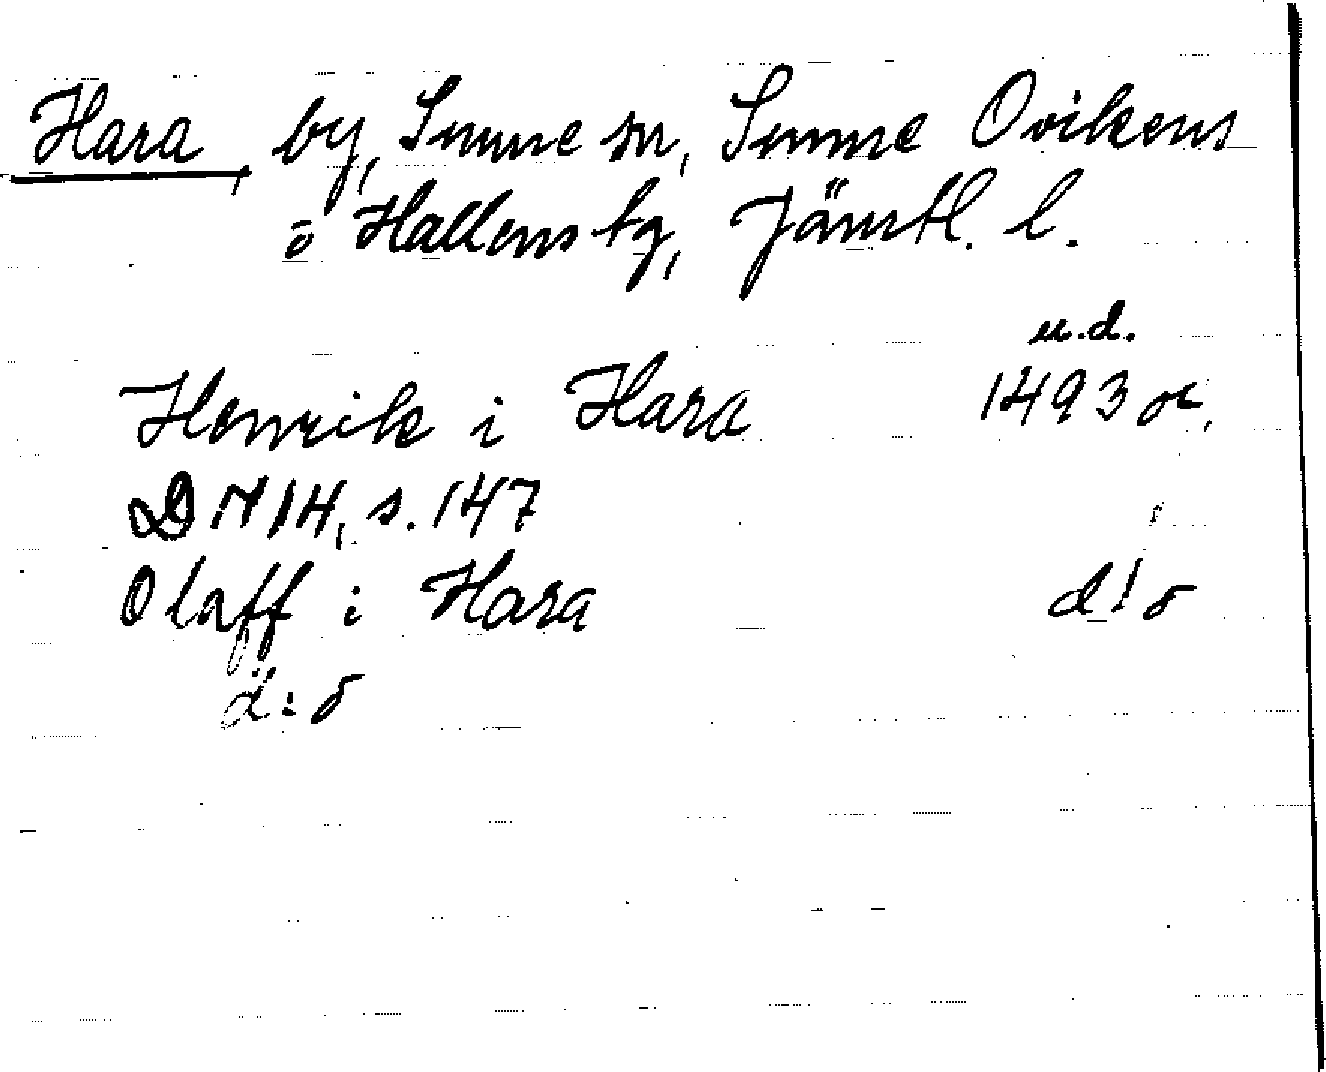 Hara, by, Sunne sn, Sunne Ovikens
o Hallens tg, Jämtl. l.
u.d.
Henrik i Hara 1493 or.
DN 14, s. 147
Olaff i Hara d:o
d:o